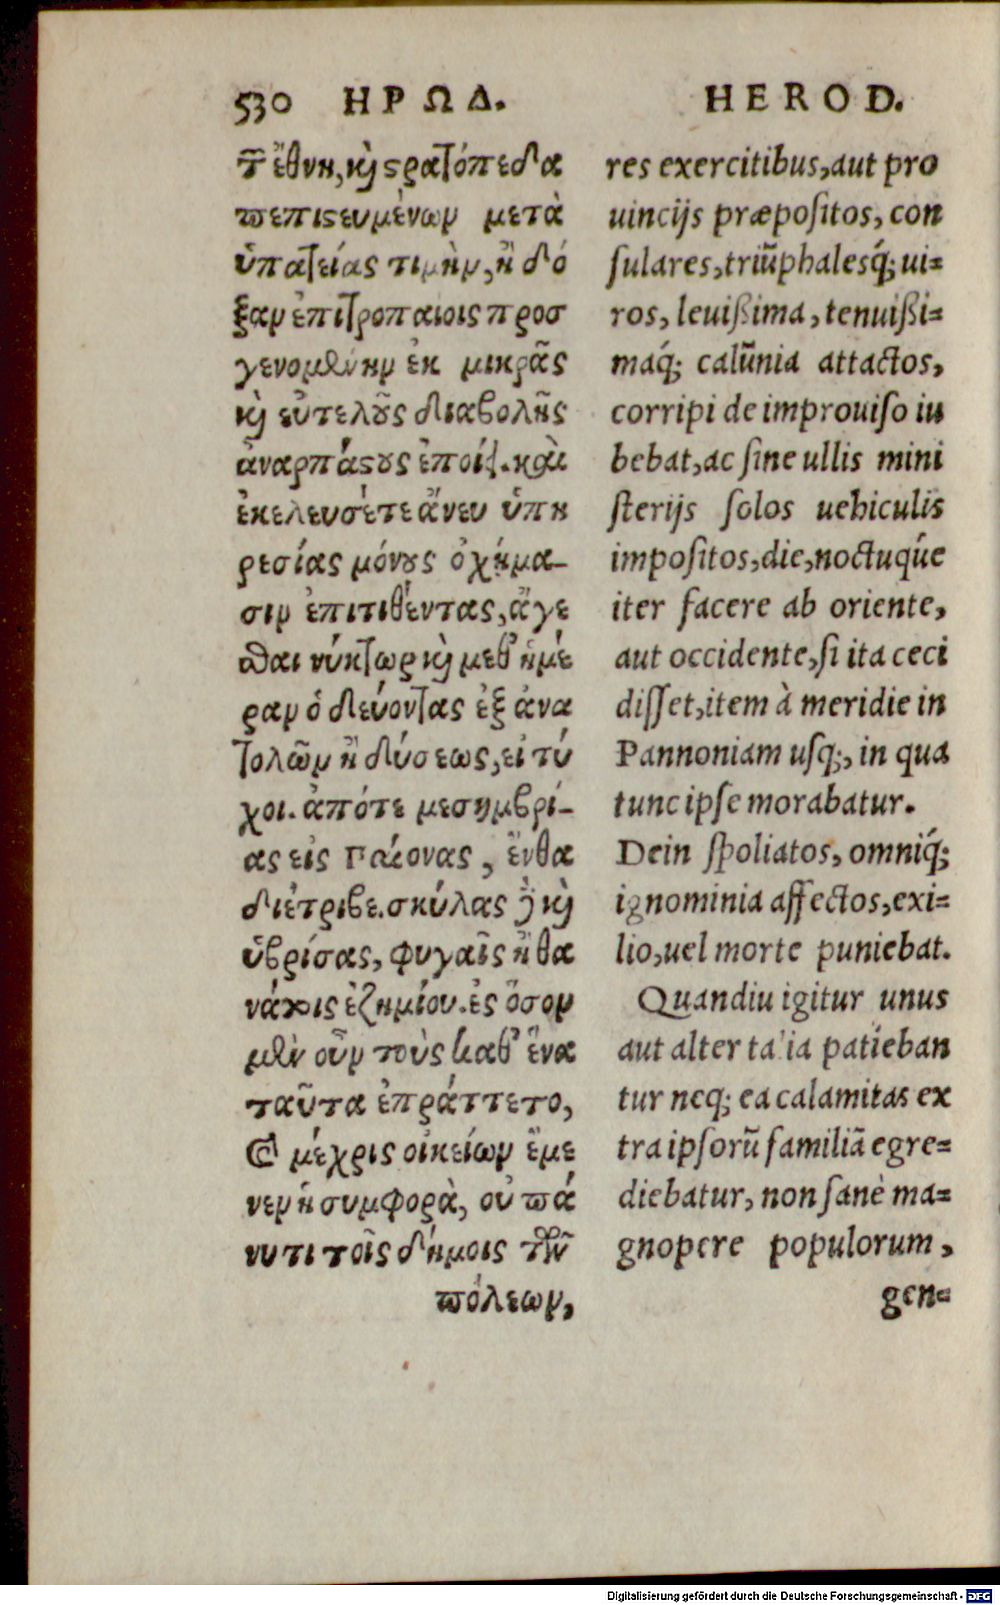 530 ΗΡΩΔ. HEROD.
τ̃ ἔθνη, καὶ στρατόπεδα
πεπιστευμένων μετὰ
ὑπατείας τιμὴν, ἢ δό
ξαν ἐπιτροπαίοις προσ
γενομένην ἐκ μικρᾶς
καὶ εὐτελοῦς διαβολῆς
ἀναρπάστους ἐποίει. καὶ
ἐκελευσέτε ἄνευ ὑπη
ρεσίας μόνους ὀχήμα-
σιν ἐπιτιθέντας, ἄγε
σθαι νύκτωρ καὶ μεθ' ἡμέ
ραν ὁδεύοντας ἐξ ἀνα
τολῶν ἢ δύσεως, εἰ τύ
χοι. ἀπότε μεσημβρί-
ας εἰς Παίονας, ἔνθα
διέτριβε. σκύλας δὲ καὶ
ὑβρίσας, φυγαῖς ἢ θα
νάτοις ἐζημίου. ἐς ὅσον
μὲν οὖν τοὺς καθ' ἕνα
ταῦτα ἐπράττετο,
καὶ μέχρις οἰκείων ἔμε
νεν ἡ συμφορὰ, οὐ πά
νυ τι τοῖς δήμοις τῶν
πόλεων,
res exercitibus, aut pro
uincijs præpositos, con
sulares, triũphalesq́; ui=
ros, leuißima, tenuißi=
maq́; calũnia attactos,
corripi de improuiso iu
bebat, ac sine ullis mini
sterijs solos uehiculis
impositos, die, noctuqúe
iter facere ab oriente,
aut occidente, si ita ceci
disset, item à meridie in
Pannoniam usq;, in qua
tunc ipse morabatur.
Dein spoliatos, omniq́;
ignominia affectos, exi=
lio, uel morte puniebat.
Quandiu igitur unus
aut alter talia patieban
tur neq; ea calamitas ex
tra ipsorũ familiã egre=
diebatur, non sanè ma=
gnopere populorum,
gen=
Digitalisierung gefördert durch die Deutsche Forschungsgemeinschaft - DFG